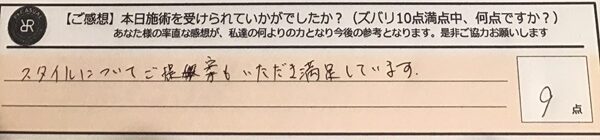 【ご感想】本日施術を受けられていかがでしたか？（ズバリ10点満点中、何点ですか？）
あなた様の率直な感想が、私達の何よりの力となり今後の参考となります。是非ご協力お願いします
スタイルについてご提案もいただき満足しています.
9点